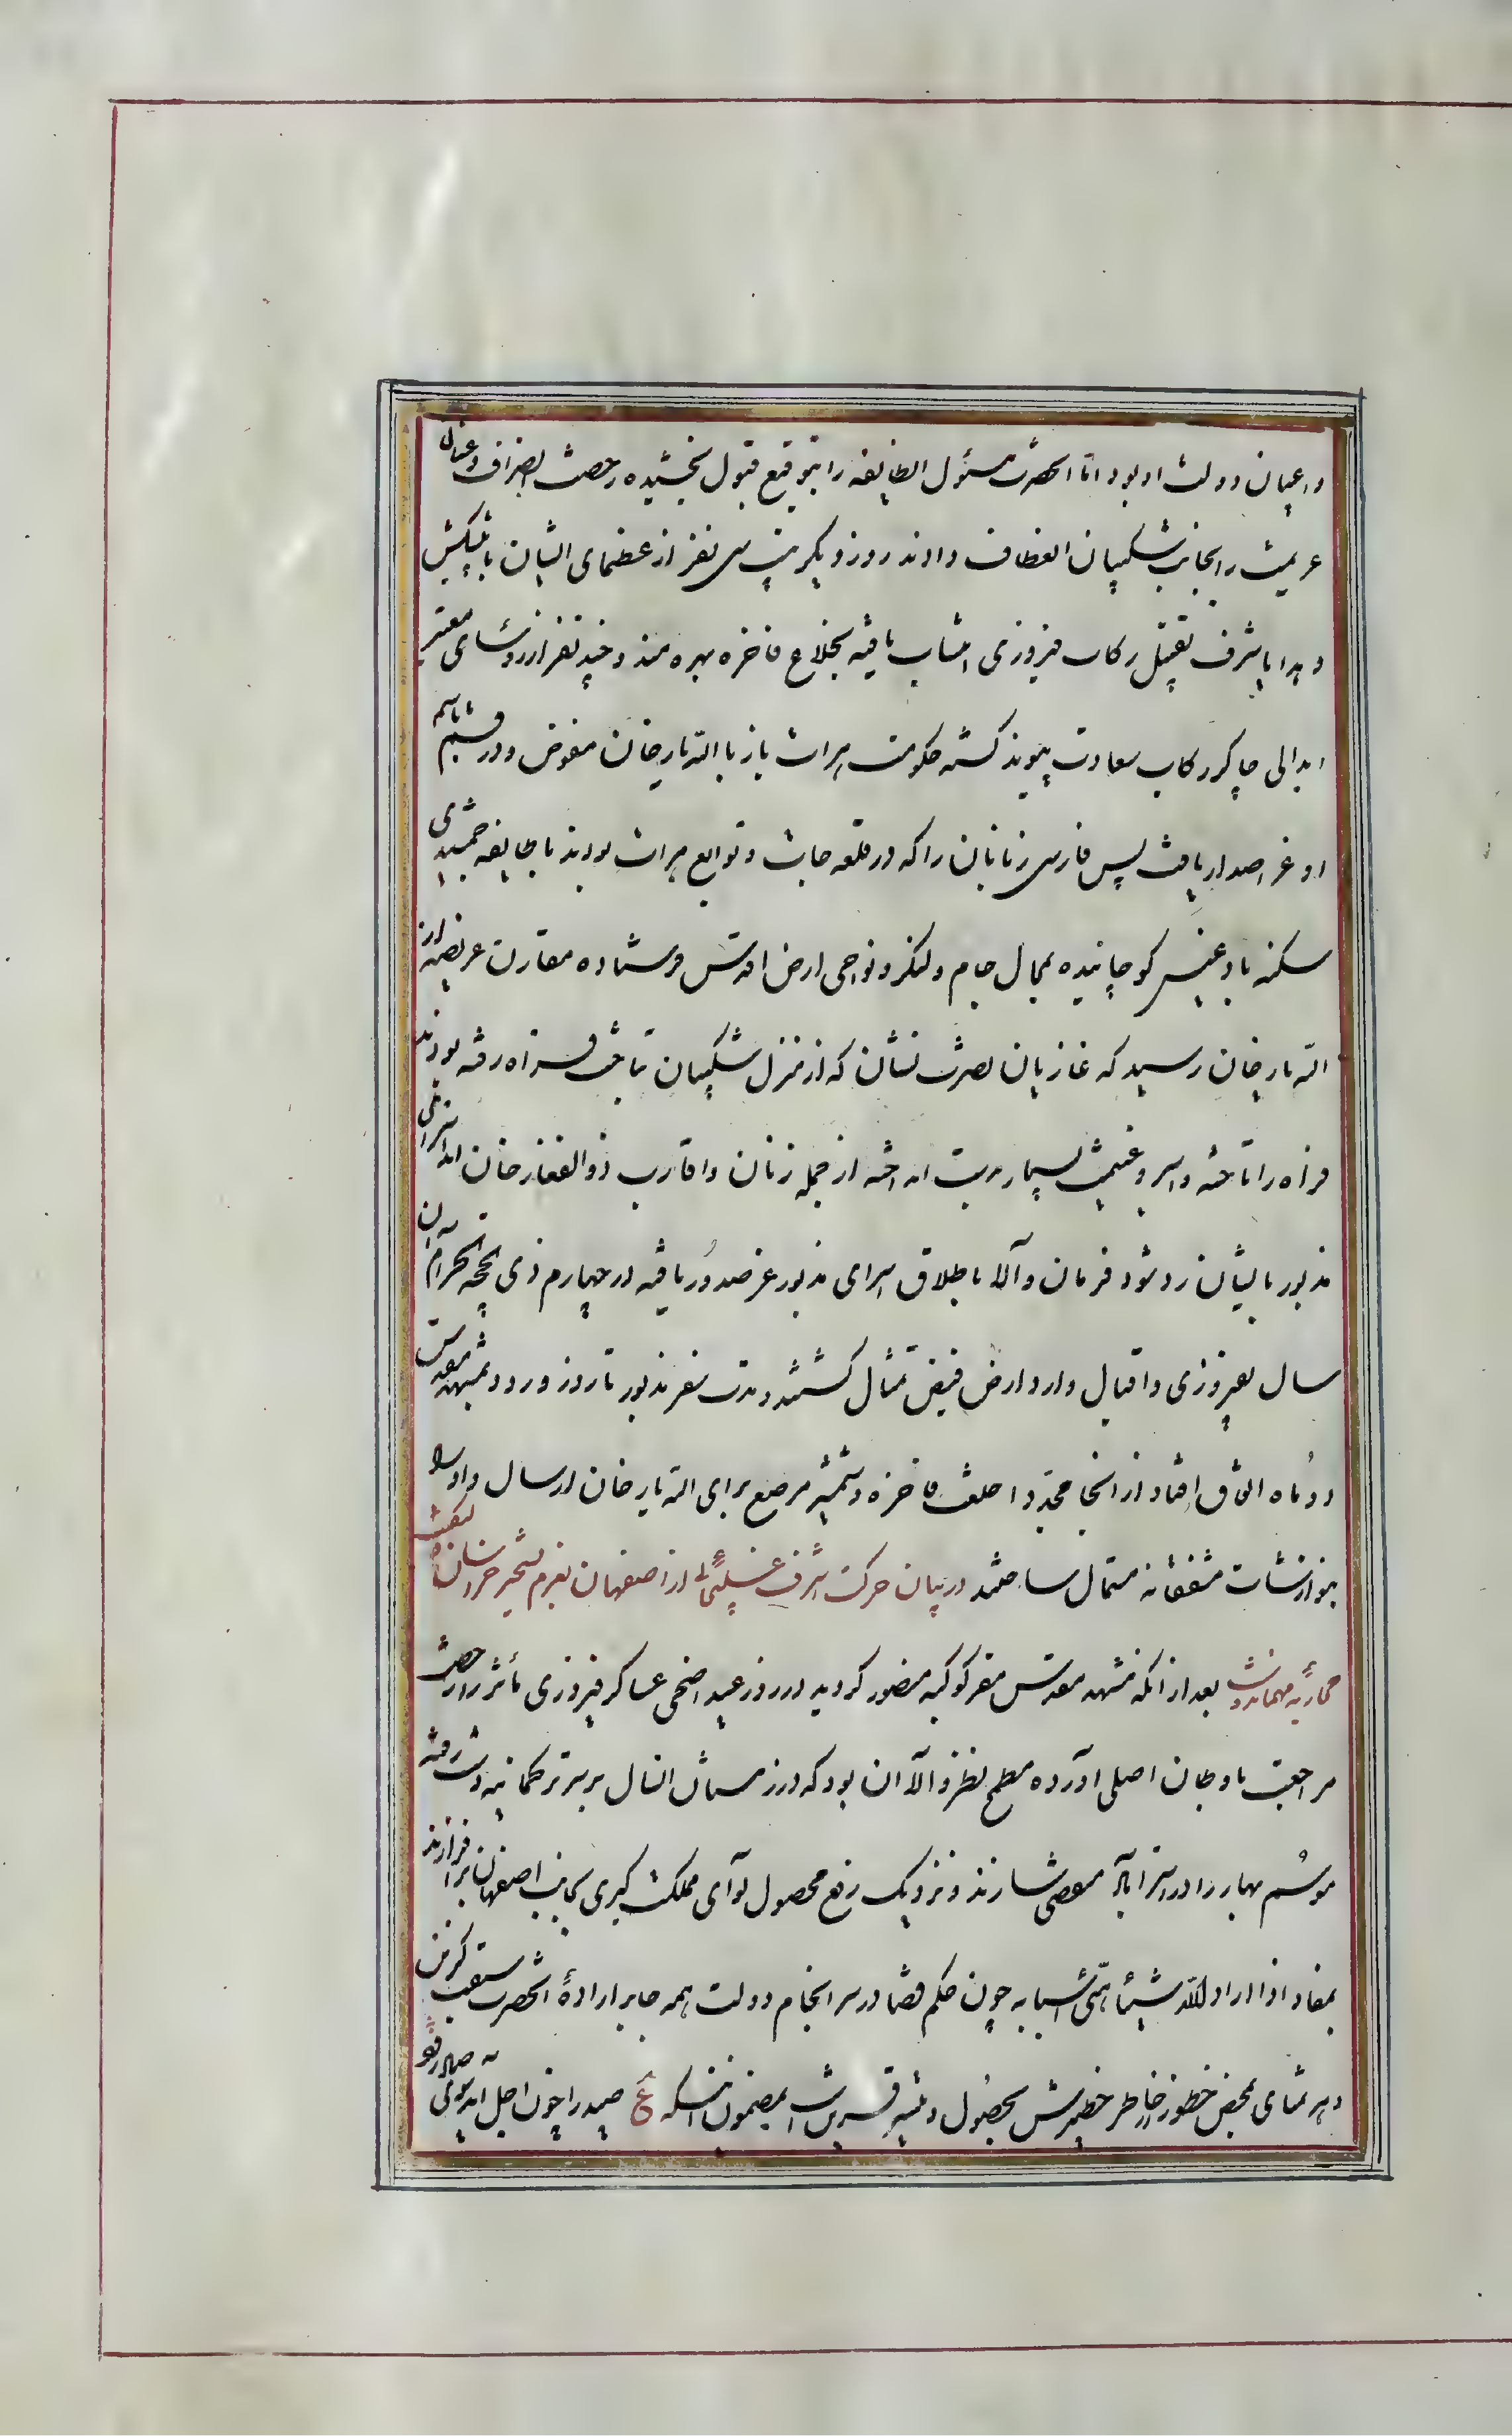 و اعیان دولت او بود اما آنحضرت مسئول انطایفه را بتوقیع قبول بخشیده رخصت انصراف و عنان
عزیمت را بجانب شکیبان انعطاف دادند روز دیگر بیست سی نفر از عظمای ایشان با پیشکش
و هدایا شرف تقبیل رکاب فیروزی انتساب یافته بخلاع فاخره بهره مند و چند نفر از رؤسای معتبر
ابدالی چاکر رکاب سعادت پیوند گشته حکومت هرات باز با الله یار خان مفوض و در قسم باسم
او عز اصدار یافت پس فارسی زبانان را که در قلعه جات و توابع هرات بودند با طایفه جمشیدی
سکنه بادغیس کوچانیده بمحال جام و لنگر و نواحی ارض اقدس فرستاده مقارن عریضه از
الله یار خان رسید که غازیان نصرت نشان که از منزل شکیبان بتاخت فراه رفته بودند
فراه را تاخته و اسیر و غنیمت بسیار بدست انداخته از جمله زنان و اقارب ذوالفقار خان اند اسرای
مذبور بایشان رد شود فرمان والا باطلاق اسرای مذبور عز صدور یافته در چهارم ذی الحجة الحرام آن
سال بفیروزی و اقبال وارد ارض فیض تمثال گشتند و مدت سفر مذبور تا روز ورود بمشهد مقدس
دو ماه اتفاق افتاد از آنجا مجددا خلعت فاخره و شمشیر مرصع برای الله یار خان ارسال و او را
بنوازشات مشفقانه مستمال ساختند در بیان حرکت اشرف غلیجائی از اصفهان بعزم تسخیر خراسان و کیفیت
محاربه مهماندوست بعد از آنکه مشهد مقدس مقر کوکبه منصور گردید در روز عید اضحی عساکر فیروزی مآثر را رخصت
مراجعت باوطان اصلی آورده مطمح نظر والا آن بود که در زمستان انسال بر سر ترکمانیه دشت رفته
موسم بهار را در استراباد منقضی سازند و نزدیک رفع محصول لوای مملکت گیری بجانب اصفهان بر افرازند
بمفاد اذا اراد الله شیئا هیئ اسبابه چون حکم قضا در سرانجام دولت همه جا بر اراده آنحضرت سبقت گزین
و هر تمنای بمحض خطور از خاطر خطیرش بحصول و تیسیر قرین است بمضمون اینکه ع صید را چون اجل آید سوی صیاد رود